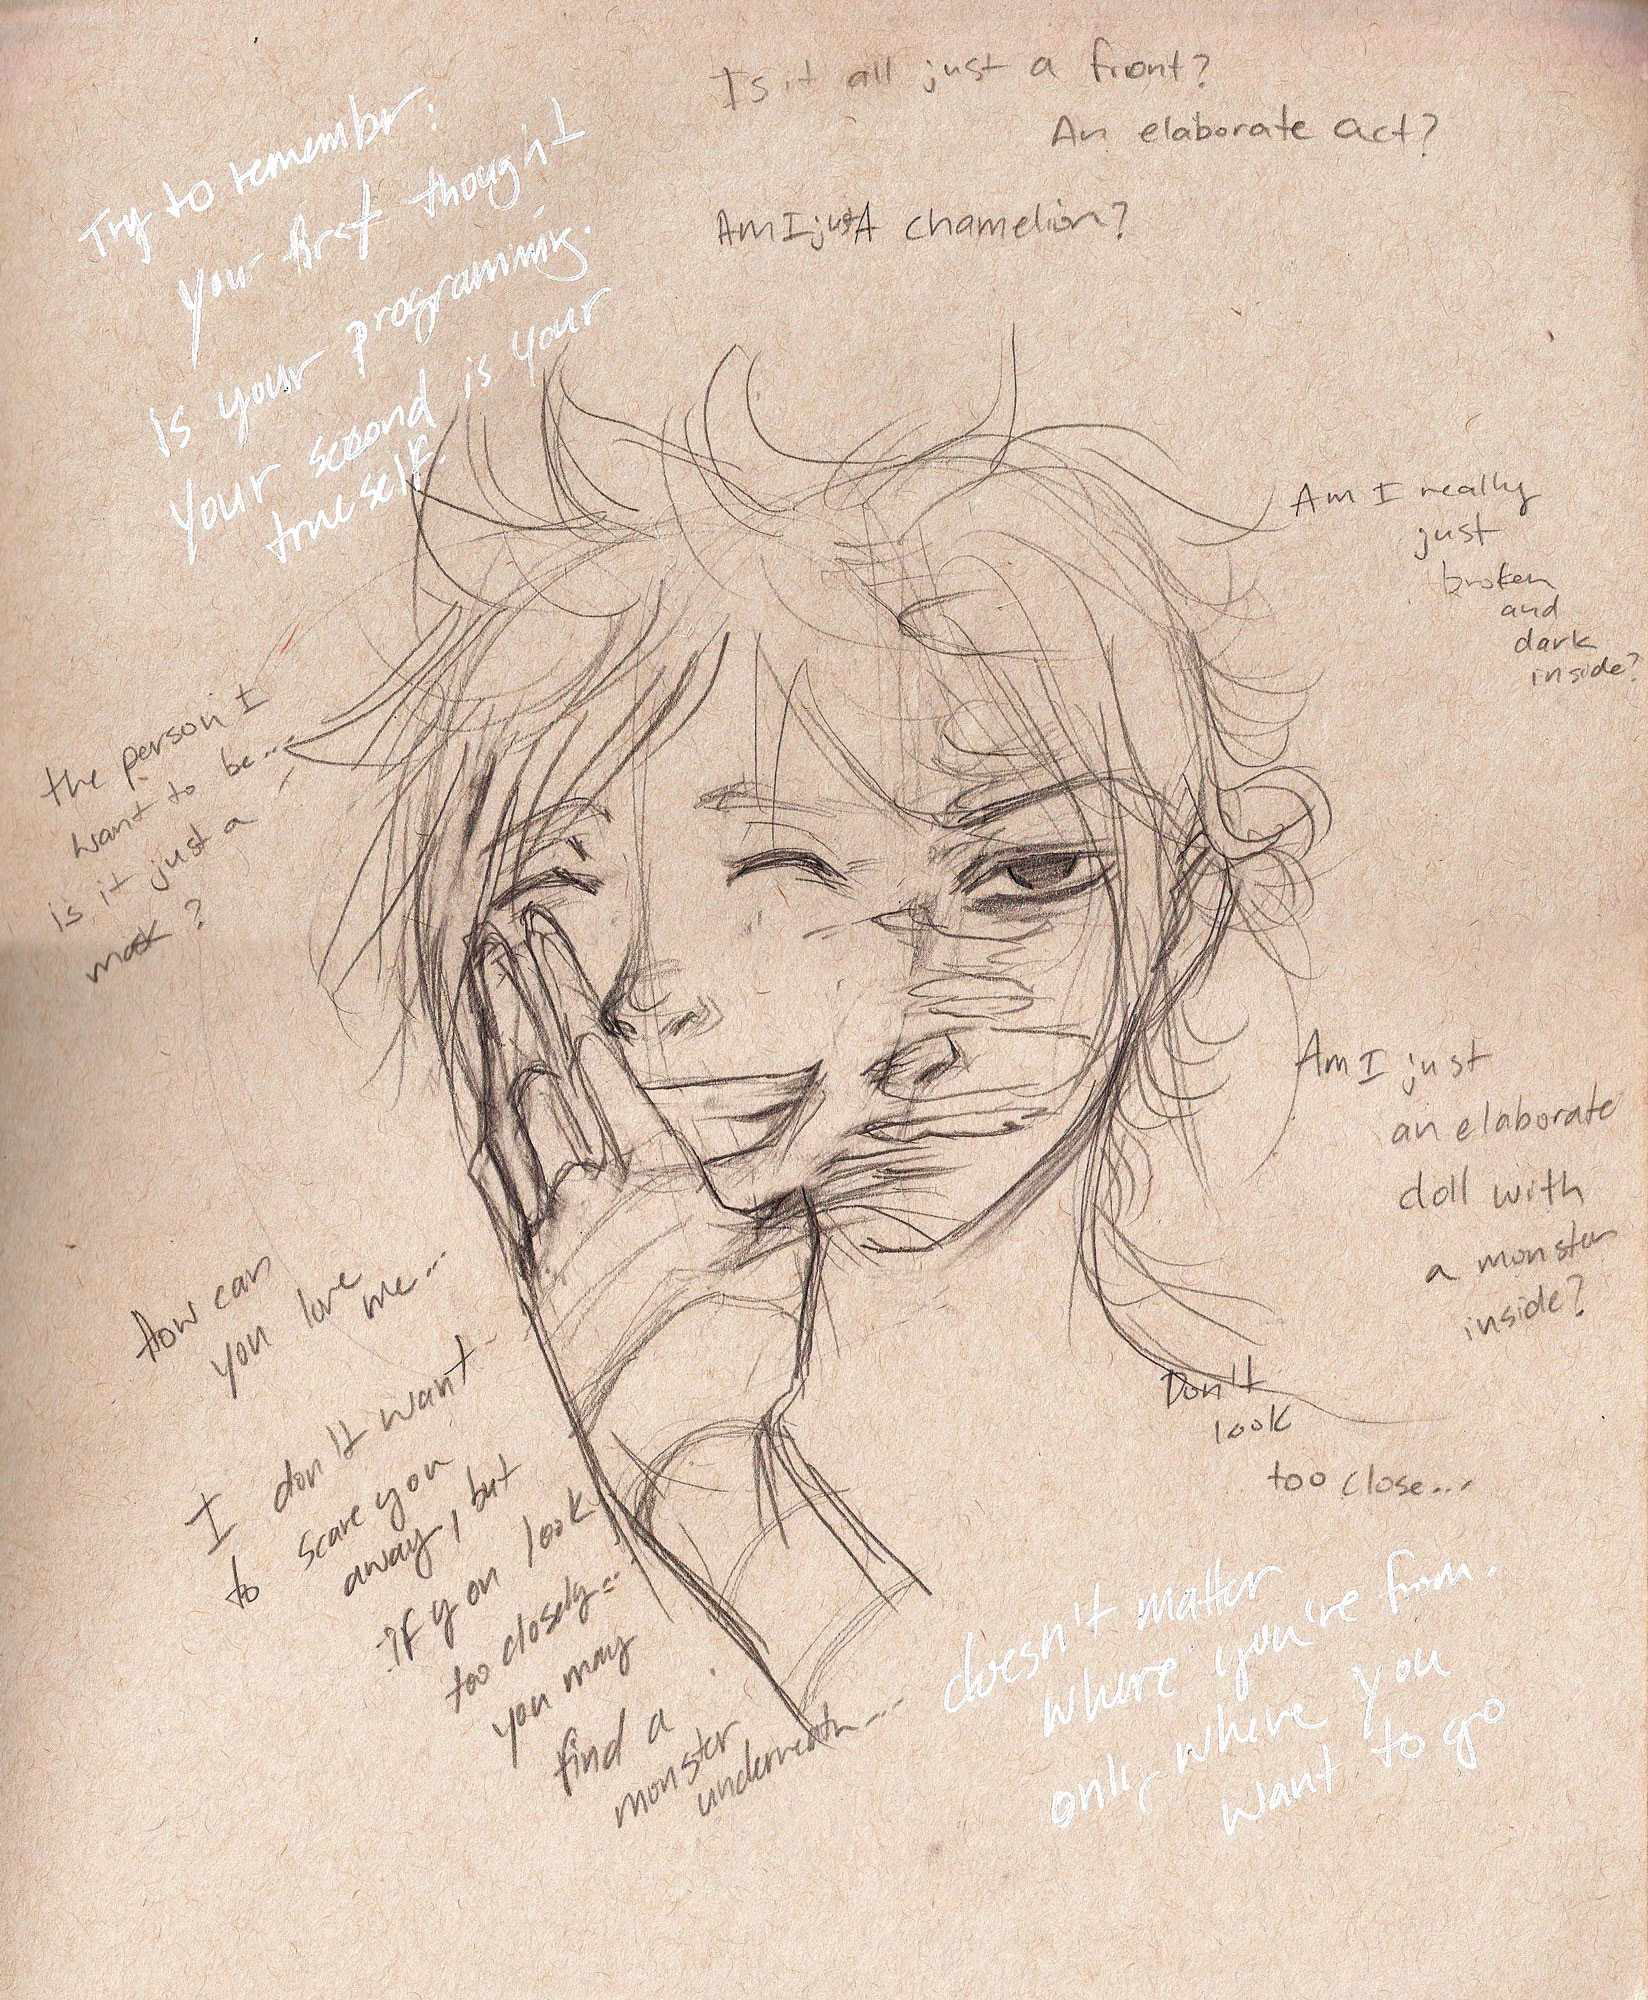 Is it all just a front?
An elaborate act?
Am I just A chamelion?
Try to remember:
your first thought
is your programming.
Your second is your
true self.
Am I really
just
broken
and
dark
inside?
the person I
want to be...
is it just a
mask?
Am I just
an elaborate
doll with
a monster
inside?
How can
you love
me...
I don't want
to scare you
away, but
if you look
too closely...
you may
find a
monster
underneath...
Don't
look
too close...
doesn't matter
where you're from.
only where you
want to go